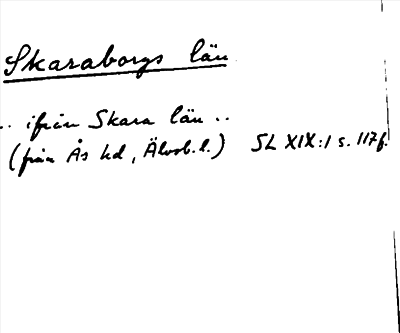 Skaraborgs län
.. ifrån Skara län ..
(från Ås hd, Älvsb. l.) SL XIX:1 s. 117f.